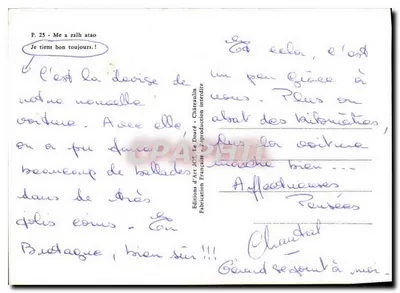 P. 25 - Me a zalh atao
Je tiens bon toujours. !
C'est la devise de
notre nouvelle
voiture. Avec elle
on a pu faire
beaucoup de ballades
dans de très
jolis coins. En
Bretagne, bien sûr!!!
Editions d'Art JOS Le Doaré - Châteaulin
Fabrication Française - Reproduction interdite
Et cela, c'est
un peu grâce à
vous. Plus on
abat des kilomètres,
plus la voiture
marche bien...
Affectueuses
Pensées
Chantal
Gérard se joint à moi.